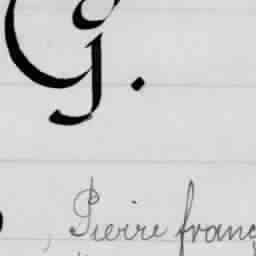 G.
, Pierre franç